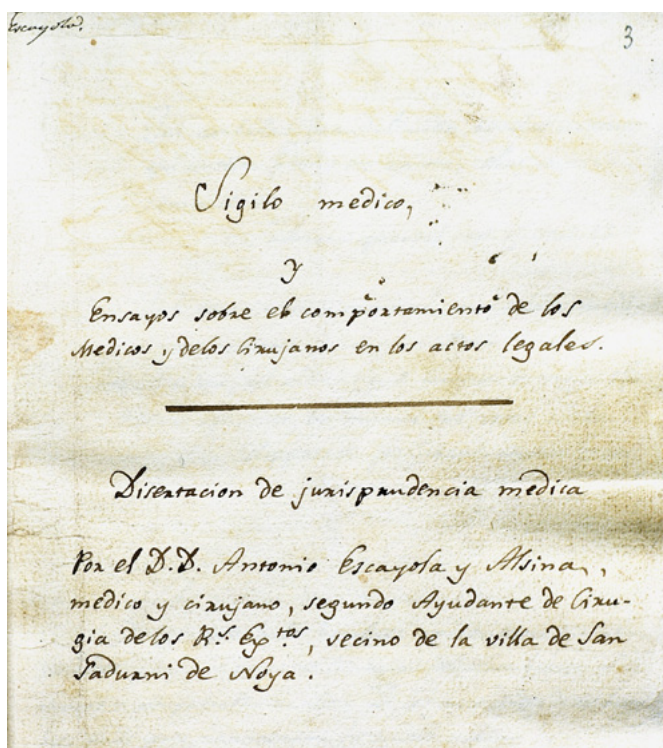 Escayola.
3
Sigilo medico,
y
Ensayos sobre el comportamiento de los
Medicos, y delos Cirujanos en los actos legales.
Disertacion de jurisprudencia medica
Por el D.D. Antonio Escayola y Alsina,
medico y cirujano, segundo Ayudante de Ciru-
gia delos R.s Exp.tos, vecino de la villa de San
Sadurni de Noya.